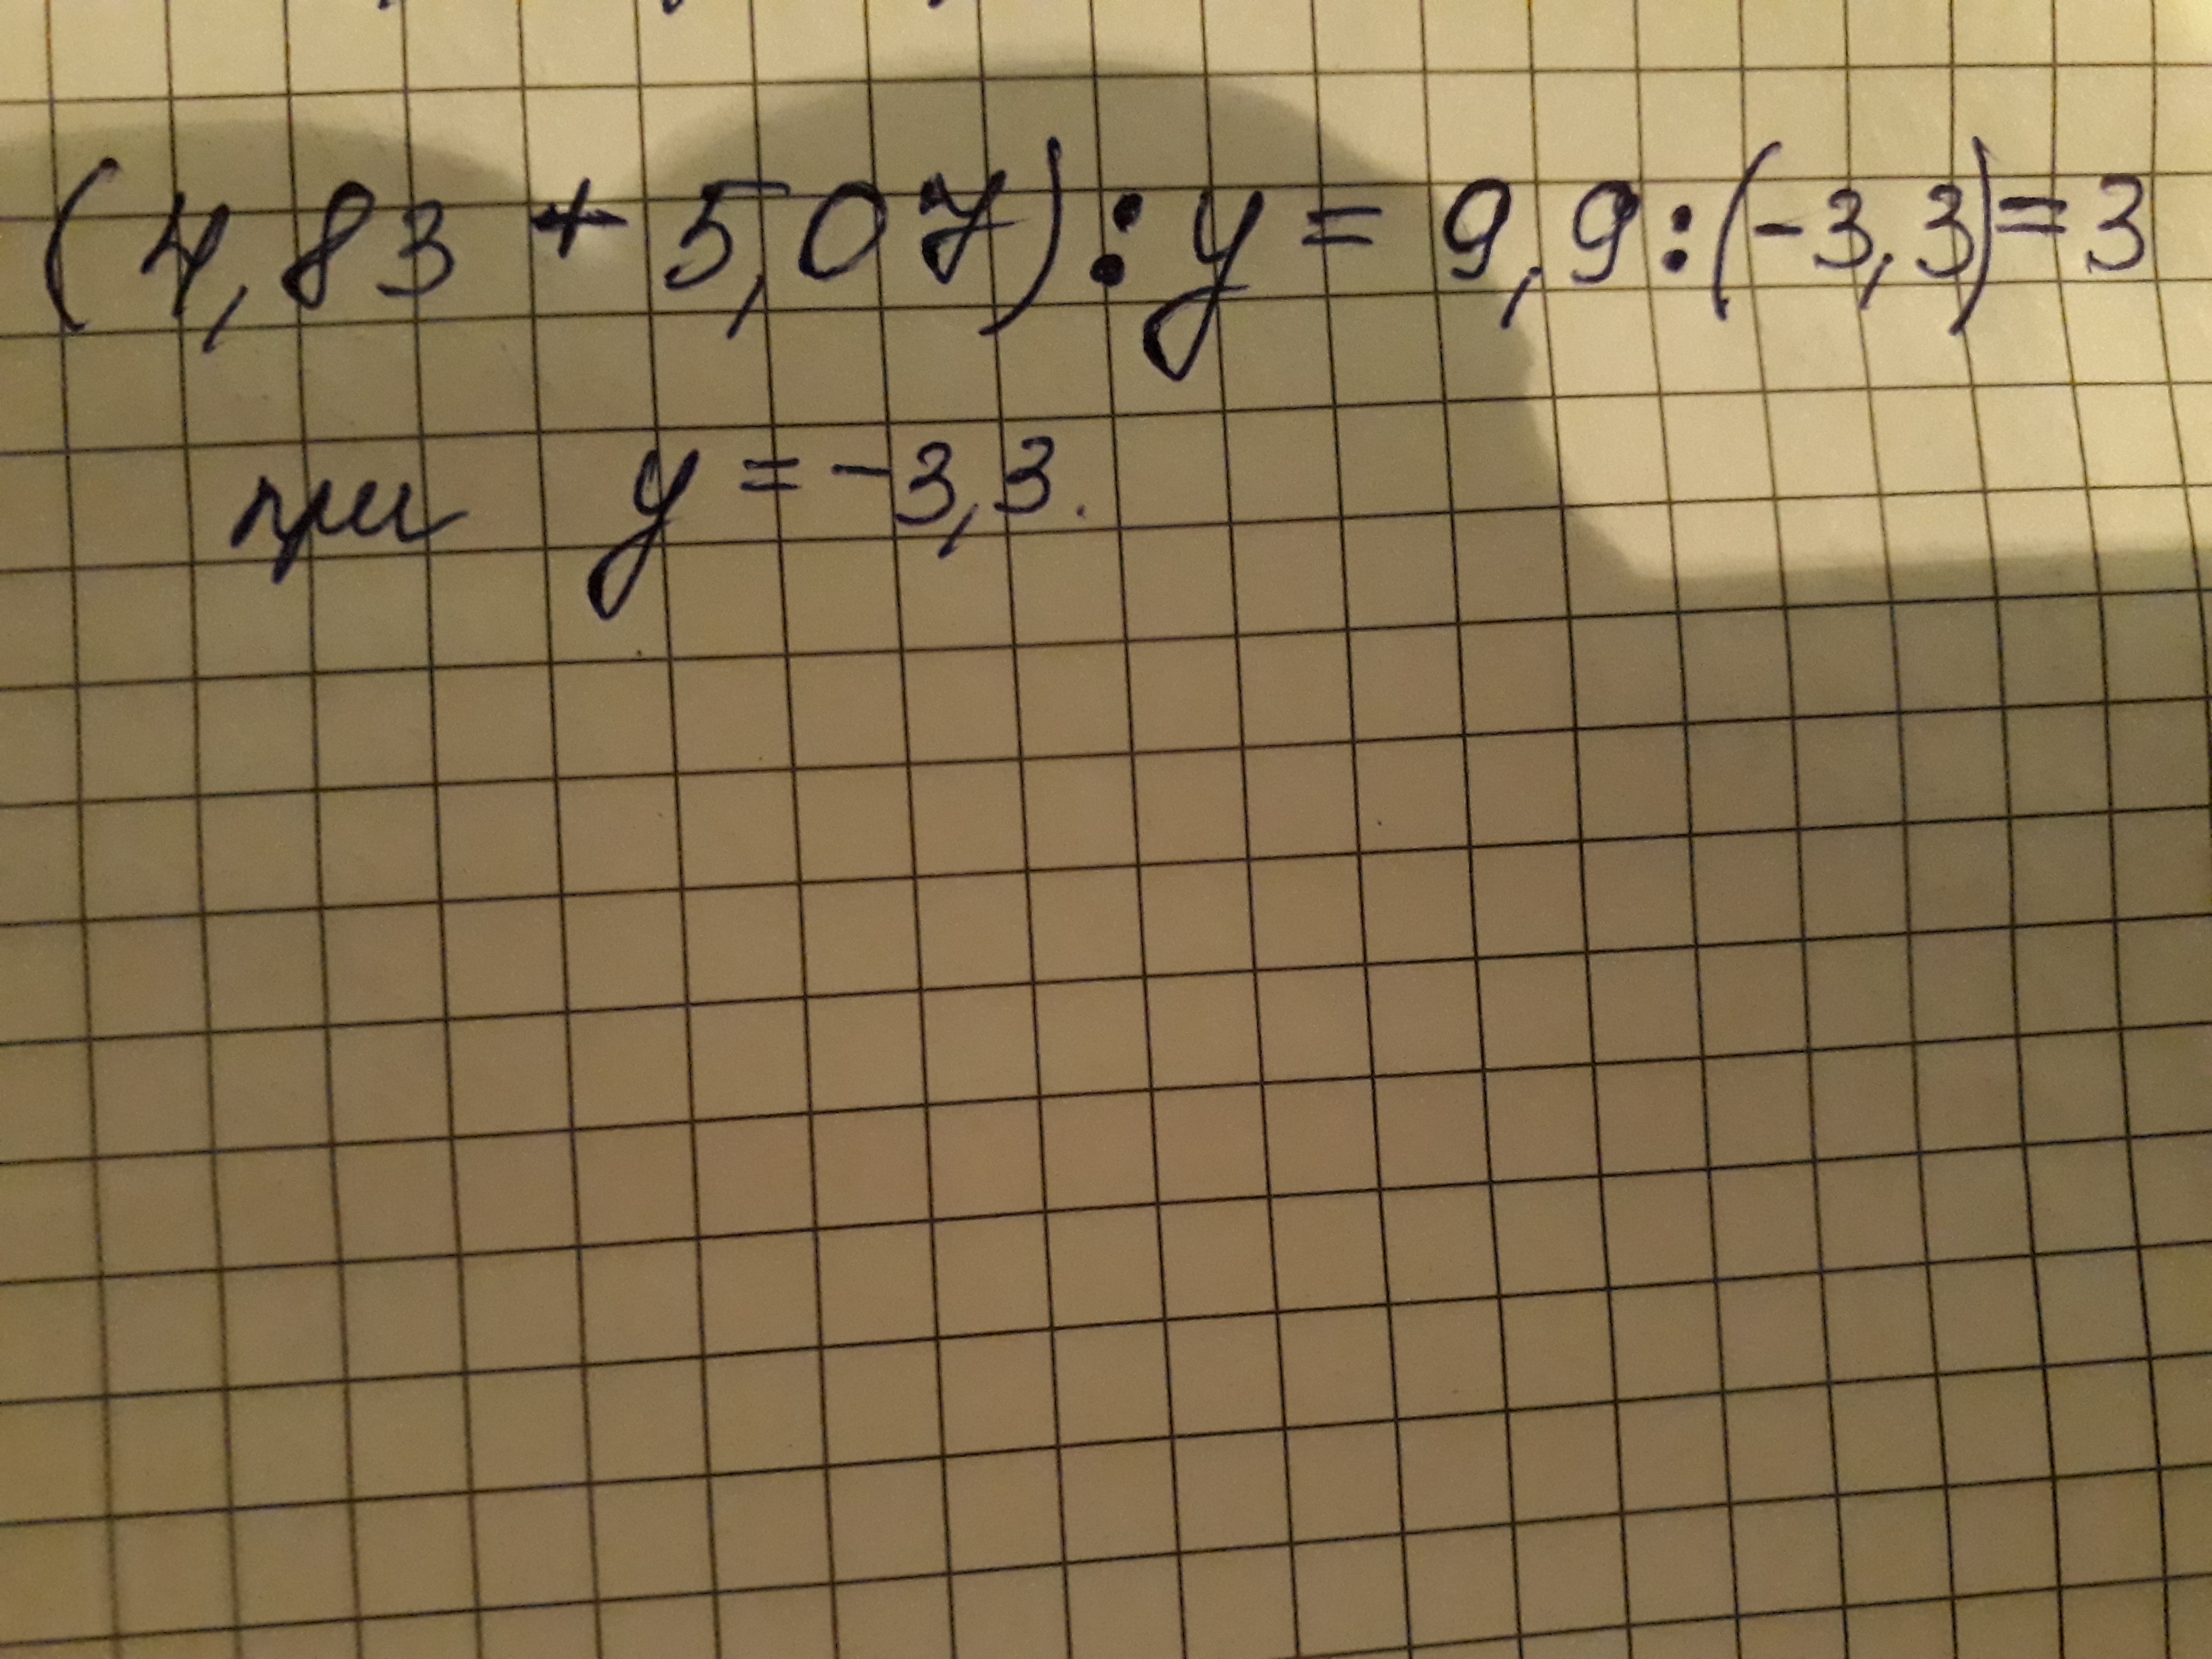 (4,83 + 5,07) : y = 9,9 : (-3,3) = 3
при y = -3,3.